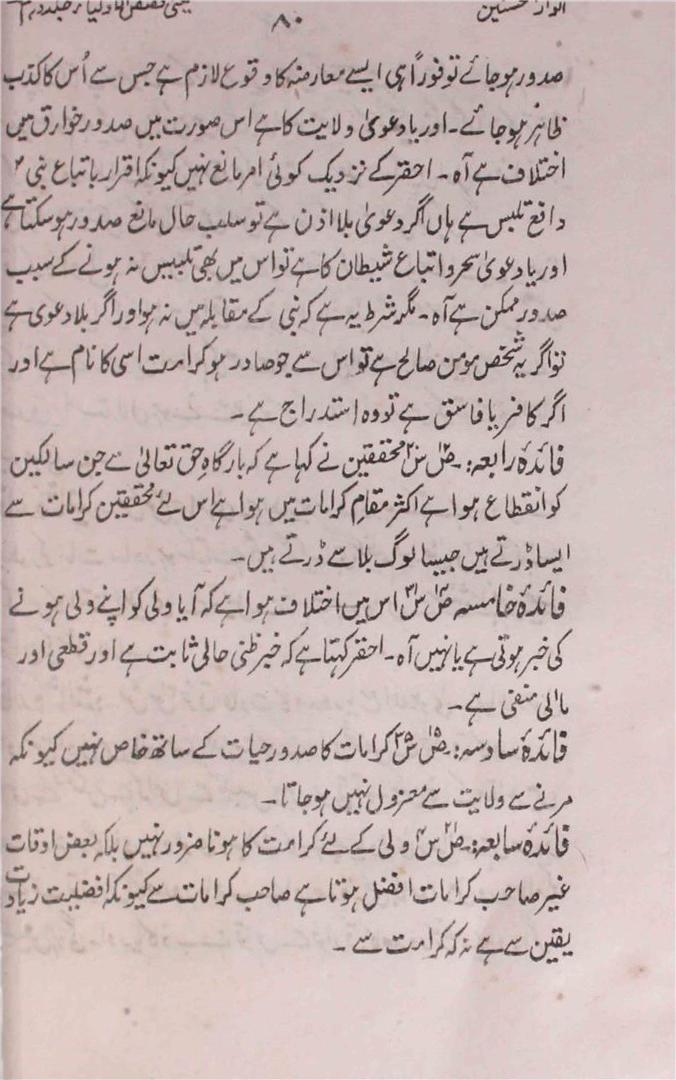 انوار المحسنین
۸۰
یعنی قصص الاولیاء جلد دہم
صدور ہو جائے تو فوراً ہی ایسے معارضہ کا وقوع لازم ہے جس سے اُس کا کذب
ظاہر ہو جائے۔ اور یا دعویٰ ولایت کا ہے اس صورت میں صدور خوارق میں
اختلاف ہے آہ۔ احقر کے نزدیک کوئی امر مانع نہیں کیونکہ اقرار باتباع نبی ؐ
دافع تلبس ہے ہاں اگر دعویٰ بلا اذن ہے تو سلب حال مانع صدور ہو سکتا ہے
اور یا دعویٰ سحر و اتباع شیطان کا ہے تو اس میں بھی تلبیس نہ ہونے کے سبب
صدور ممکن ہے آہ۔ مگر شرط یہ ہے کہ نبی کے مقابلہ میں نہ ہو اور اگر بلا دعویٰ ہے
تو اگر یہ شخص مومن صالح ہے تو اس سے جو صادر ہو کرامت اسی کا نام ہے اور
اگر کافر یا فاسق ہے تو وہ استدراج ہے۔
فائدۂ رابعہ:۔ ص س محققین نے کہا ہے کہ بارگاہِ حق تعالیٰ سے جن سالکین
کو انقطاع ہوا ہے اکثر مقام کرامات میں ہوا ہے اس لئے محققین کرامات سے
ایسا ڈرتے ہیں جیسا لوگ بلا سے ڈرتے ہیں۔
فائدۂ خامسہ ص س اس میں اختلاف ہوا ہے کہ آیا ولی کو اپنے ولی ہونے
کی خبر ہوتی ہے یا نہیں آہ۔ احقر کہتا ہے کہ خبر ظنی حالی ثابت ہے اور قطعی اور
مآلی منفی ہے۔
فائدۂ سادسہ:۔ ص س کرامات کا صدور حیات کے ساتھ خاص نہیں کیونکہ
مرنے سے ولایت سے معزول نہیں ہو جاتا۔
فائدۂ سابعہ:۔ ص س ولی کے لئے کرامت کا ہونا ضرور نہیں بلکہ بعض اوقات
غیر صاحب کرامات افضل ہوتا ہے صاحب کرامات سے کیونکہ افضلیت زیادت
یقین سے ہے نہ کہ کرامت سے۔